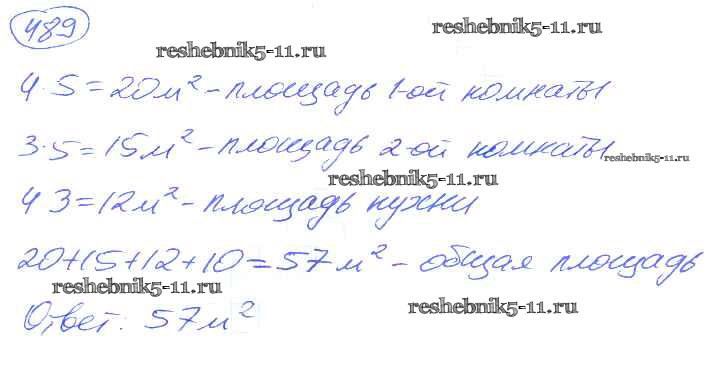 489
reshebnik5-11.ru
reshebnik5-11.ru
4 5=20м² - площадь 1-ой комнаты
3·5=15м² - площадь 2-ой комнаты
reshebnik5-11.ru
reshebnik5-11.ru
4 3=12м² - площадь кухни
20+15+12+10=57м² - общая площадь
reshebnik5-11.ru
reshebnik5-11.ru
Ответ: 57м²